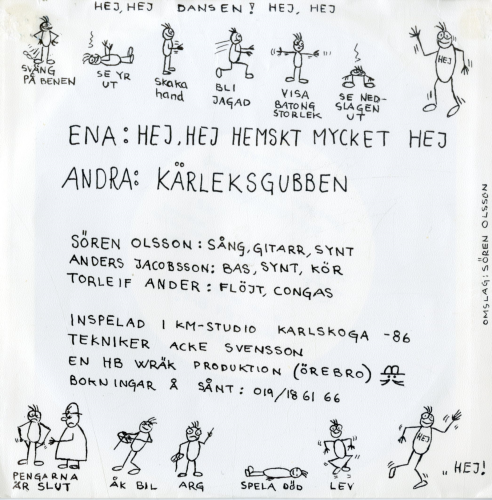 HEJ, HEJ DANSEN! HEJ, HEJ
SVÄNG
PÅ BENEN
SE YR
UT
SKAKA
HAND
BLI
JAGAD
VISA
BATONG
STORLEK
SE NED-
SLAGEN
UT
HEJ
ENA: HEJ, HEJ HEMSKT MYCKET HEJ
ANDRA: KÄRLEKSGUBBEN
SÖREN OLSSON: SÅNG, GITARR, SYNT
ANDERS JACOBSSON: BAS, SYNT, KÖR
TORLEIF ANDER: FLÖJT, CONGAS
INSPELAD I KM-STUDIO KARLSKOGA -86
TEKNIKER ACKE SVENSSON
EN HB WRÅK PRODUKTION (ÖREBRO)
BOKNINGAR Å SÅNT: 019/18 61 66
OMSLAG: SÖREN OLSSON
PENGARNA
ÄR SLUT
ÅK BIL
ARG
SPELA DÖD
LEV
HEJ
..HEJ!